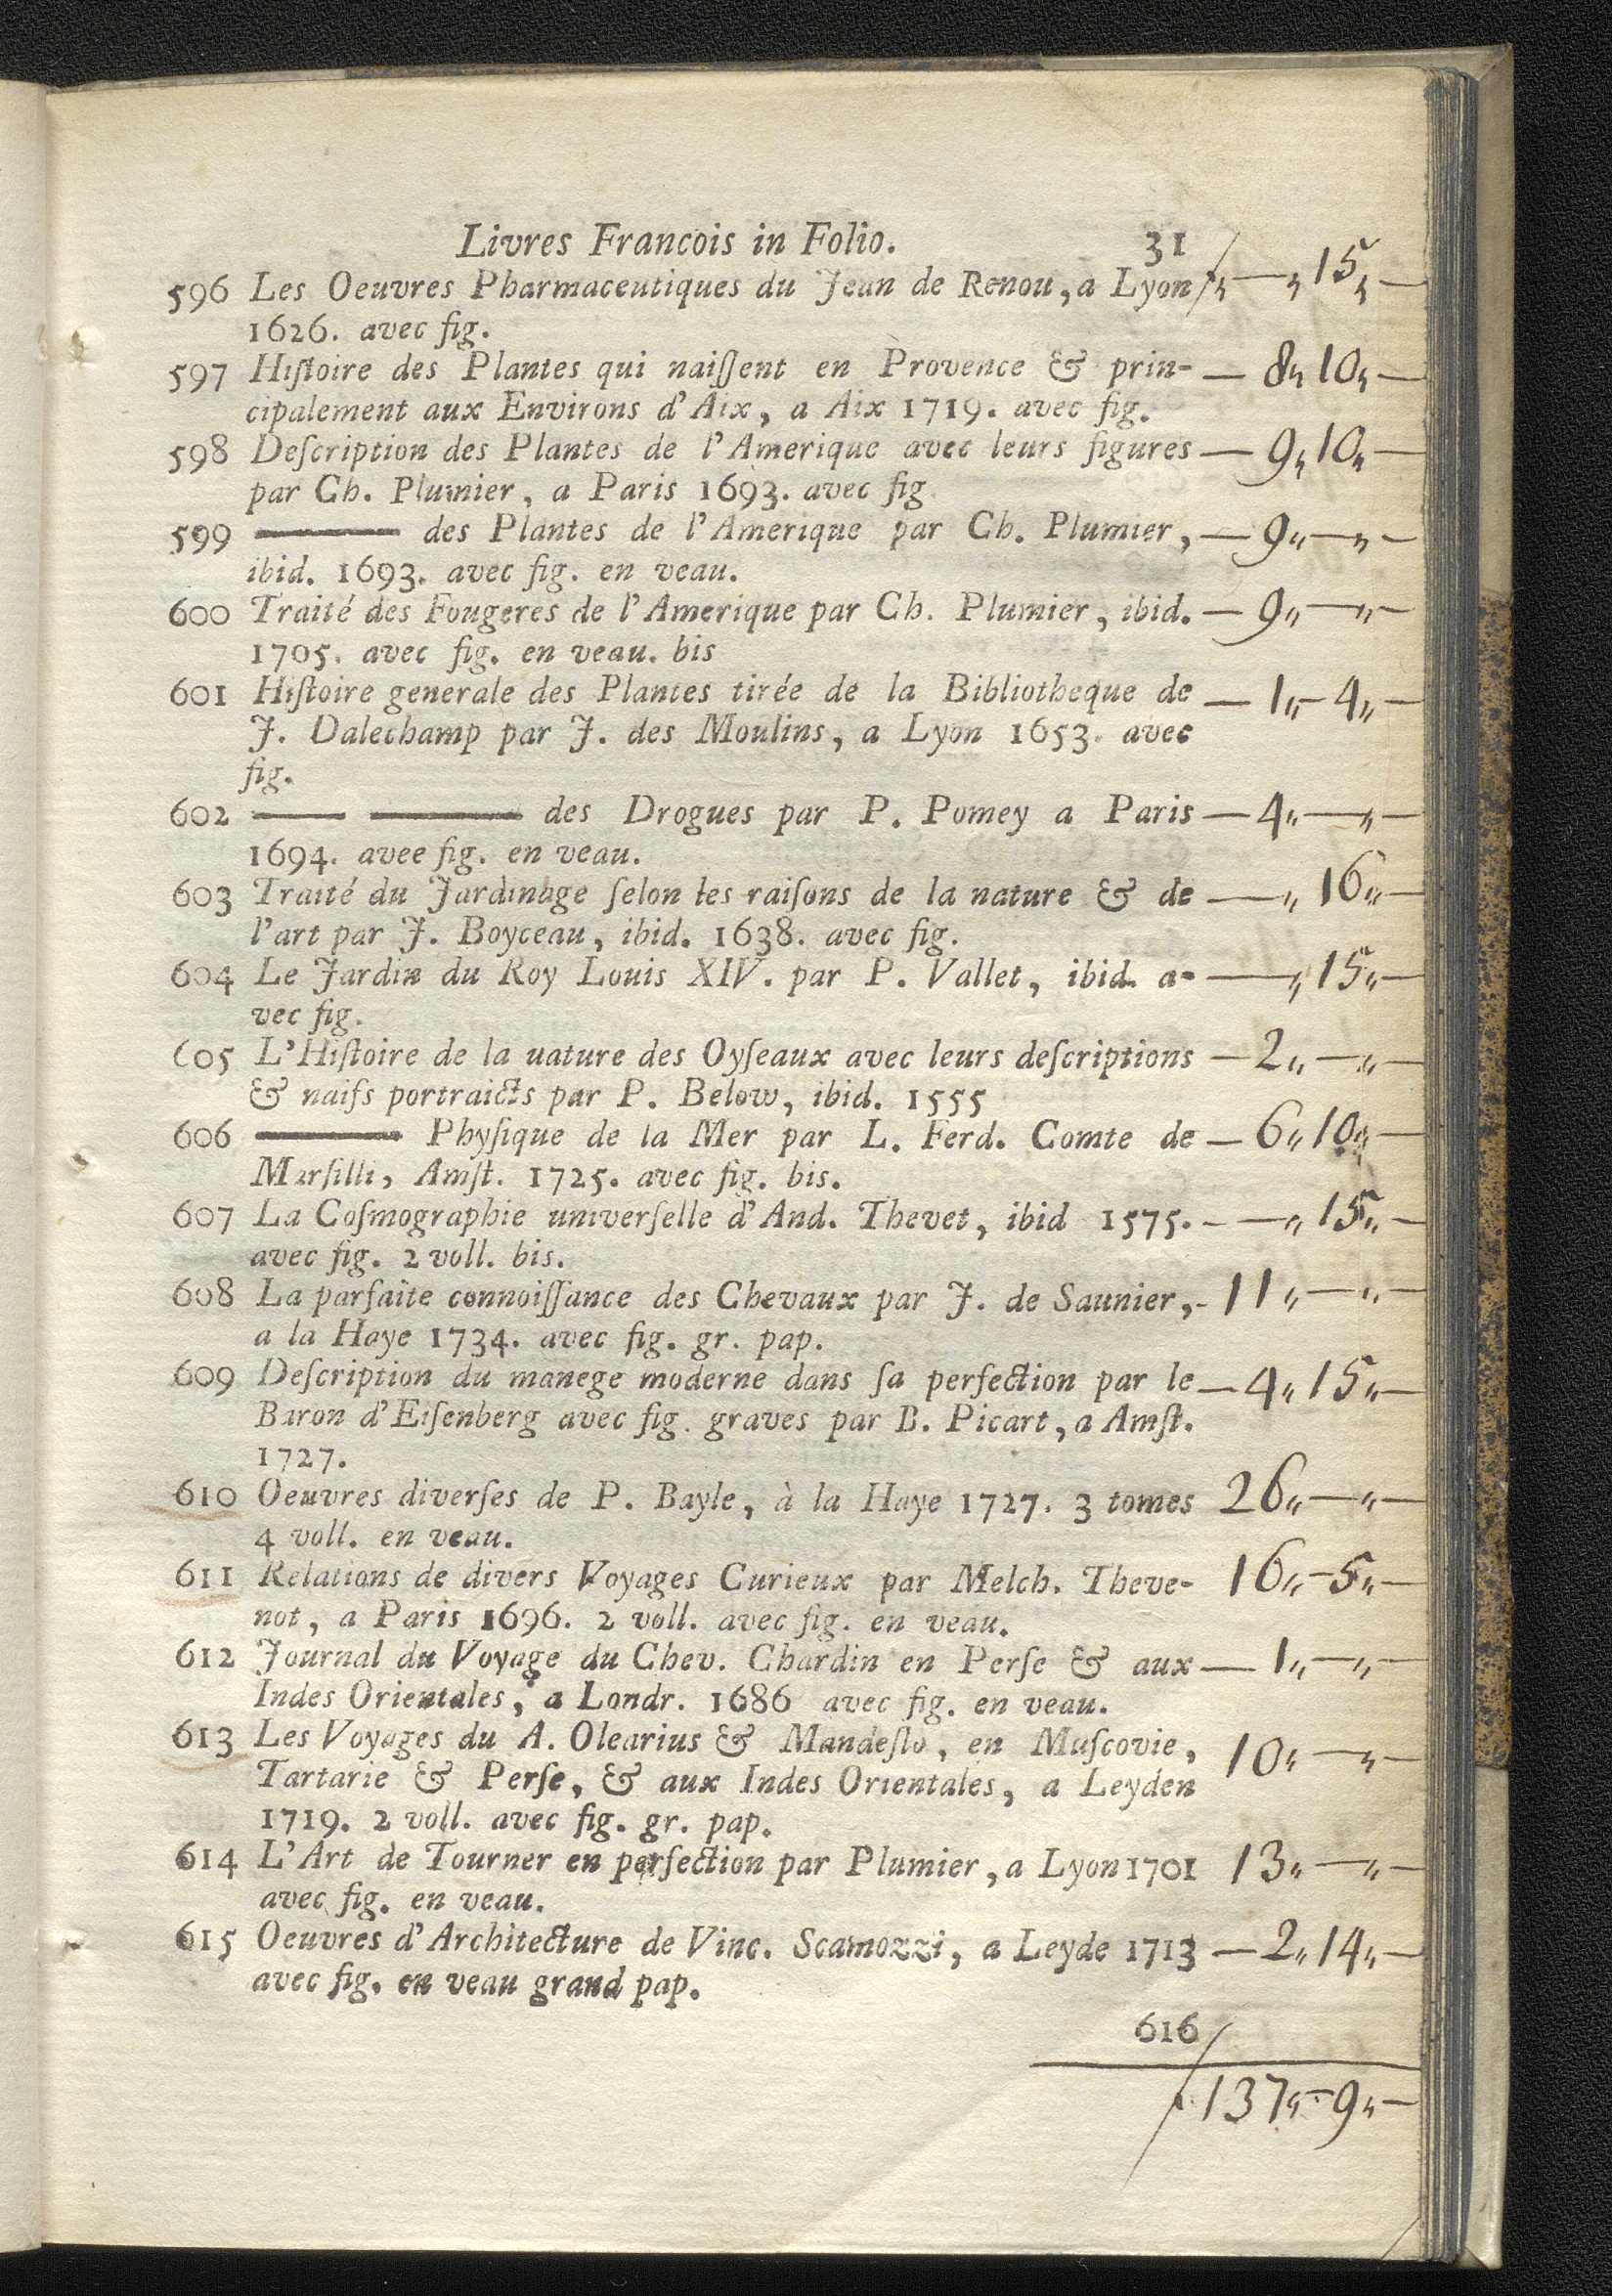 Livres Francois in Folio. 31
596 Les Oeuvres Pharmaceutiques du Jean de Renou, a Lyon — „ 15 „ —
1626. avec fig.
597 Hiſtoire des Plantes qui naiſſent en Provence & prin- — 8 „ 10 „ —
cipalement aux Environs d'Aix, a Aix 1719. avec fig.
598 Deſcription des Plantes de l'Amerique avec leurs figures — 9 „ 10 „ —
par Ch. Plumier, a Paris 1693. avec fig
599 ——— des Plantes de l'Amerique par Ch. Plumier, — 9 „ — „ —
ibid. 1693. avec fig. en veau.
600 Traité des Fougeres de l'Amerique par Ch. Plumier, ibid. — 9 „ — „ —
1705. avec fig. en veau. bis
601 Hiſtoire generale des Plantes tirée de la Bibliotheque de — 1 „ - 4 „ —
J. Dalechamp par J. des Moulins, a Lyon 1653. avec
fig.
602 —— ——— des Drogues par P. Pomey a Paris — 4 „ — „ —
1694. avee fig. en veau.
603 Traité du Jardinage ſelon les raiſons de la nature & de — „ 16 „ —
l'art par J. Boyceau, ibid. 1638. avec fig.
604 Le Jardin du Roy Louis XIV. par P. Vallet, ibid. a- — „ 15 „ —
vec fig.
605 L'Hiſtoire de la uature des Oyſeaux avec leurs deſcriptions — 2 „ — „ —
& naifs portraicts par P. Below, ibid. 1555
606 ——— Phyſique de la Mer par L. Ferd. Comte de — 6 „ 10 „ —
Marſilli, Amſt. 1725. avec fig. bis.
607 La Coſmographie univerſelle d'And. Thevet, ibid 1575. - — „ 15 „ —
avec fig. 2 voll. bis.
608 La parfaite connoiſſance des Chevaux par J. de Saunier, - 11 „ — „ —
a la Haye 1734. avec fig. gr. pap.
609 Deſcription du manege moderne dans ſa perfection par le — 4 „ 15 „ —
Baron d'Eiſenberg avec fig. graves par B. Picart, a Amſt.
1727.
610 Oeuvres diverſes de P. Bayle, à la Haye 1727. 3 tomes 26 „ — „ —
4 voll. en veau.
611 Relations de divers Voyages Curieux par Melch. Theve- 16 „ - 5 „ —
not, a Paris 1696. 2 voll. avec fig. en veau.
612 Journal du Voyage du Chev. Chardin en Perſe & aux — 1 „ — „ —
Indes Orientales, a Londr. 1686 avec fig. en veau.
613 Les Voyages du A. Olearius & Mandeſlo, en Muſcovie, 10 „ — „ —
Tartarie & Perſe, & aux Indes Orientales, a Leyden
1719. 2 voll. avec fig. gr. pap.
614 L'Art de Tourner en perfection par Plumier, a Lyon 1701 13 „ — „ —
avec fig. en veau.
615 Oeuvres d'Architecture de Vinc. Scamozzi, a Leyde 1713 — 2 „ 14 „ —
avec fig. en veau grand pap.
616
137 „ - 9 „ —